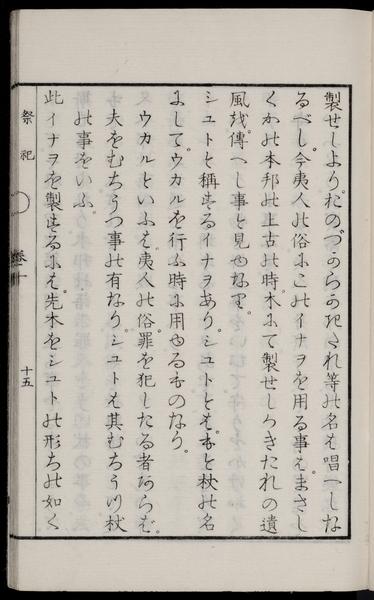 製せしより、おのづからかきたれ等の名は唱へしな
るべし。今夷人の俗にこのイナヲを用る事は、まさし
くかの本邦の上古の時、木にて製せしかきたれの遺
風を傳へし事と見ゆるなり。
シユトと稱するイナヲあり。シユトとは、もと杖の名
にして、ウカルを行ふ時に用ゆるものなり。
ウカルといふは、夷人の俗、罪を犯したる者あらば、
夫をむちうつ事の有なり。シユトは其むちうつ杖
の事をいふ。
此イナヲを製するには、先木をシユトの形ちの如く
祭祀
十五